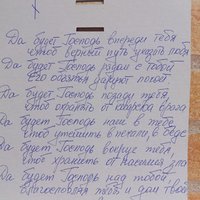 Да будет Господь впереди тебя
чтоб верный путь указать тебе
Да будет Господь рядом с тобой
Его объятья даруют покой
Да будет Господь позади тебя,
чтоб охранять от коварства врага
Да будет Господь в тебе
чтоб утешить в печали, в беде
Да будет Господь вокруг тебя,
чтоб хранить от зла
Да будет Господь над тобой
благословляя тебя и дом твой